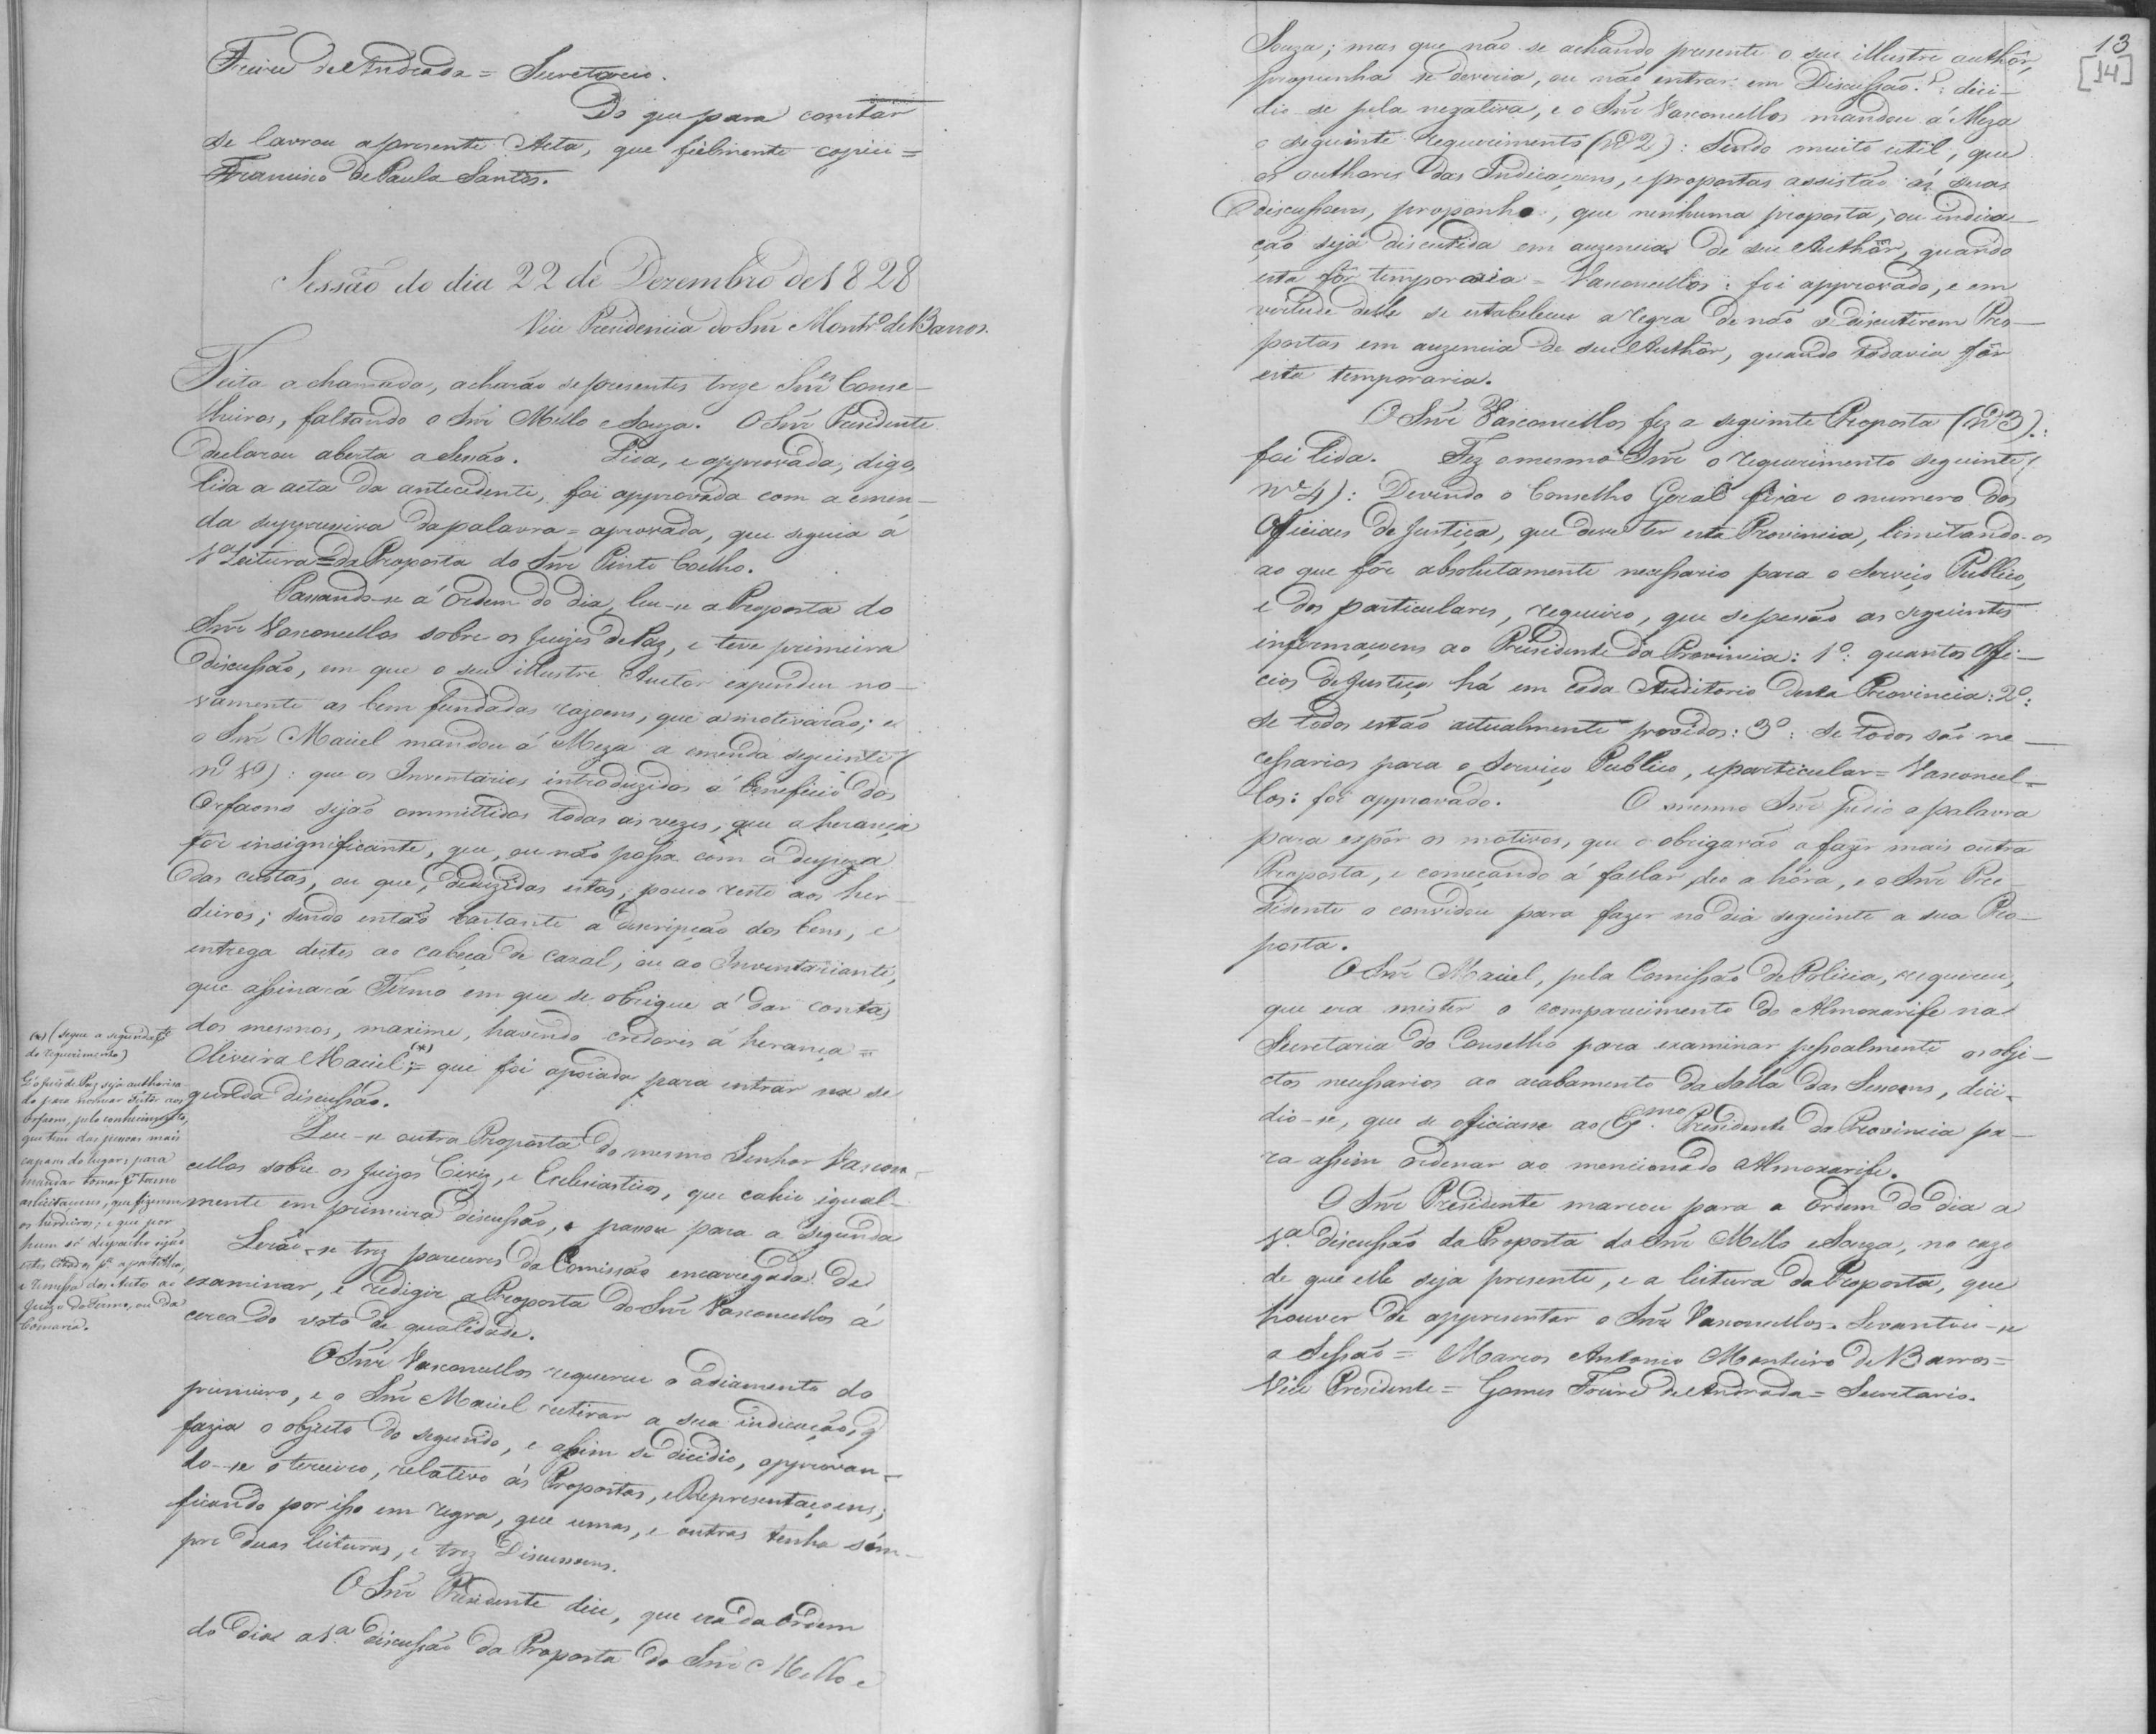 Freire de Andrada = Secretario.
Do que para constar
se lavrou apresente Acta, que fielmente copiei =
Francisco de Paula Santos.
Sessão do dia 22 de Dezembro de 1828
Vice Presidencia do Snr Montr.º de Barros.
Feita a chamada, acharão se presentes treze Snr.es Conse-
lheiros, faltando o Snr Mello e Souza. O Snr Presidente
declarou aberta a Sessão. Lida, e approvada, digo,
lida a acta da antecedente, foi approvada com a emen-
da suppressiva da palavra = aprovada, que seguia á
1.ª Leitura = da Proposta do Snr Pinto Coelho.
Passando-se á Ordem do dia, leu-se a Proposta do
Snr Vasconcellos sobre os Juizes de Paz, e teve primeira
discussão, em que o seu illustre Auctor expendeu no-
vamente as bem fundadas razoens, que a motivarão; e
o Snr Maciel mandou á Meza a emenda seguinte (
nº 1º): que os Inventarios introduzidos á beneficio dos
Orfaons sejão ommittidos todas as vezes, que a herança
fôr insignificante, que, ou não possa com a despeza
das custas, ou que, deduzidas estas, pouco reste aos her-
deiros; sendo então bastante a descripção dos bens, e
entrega destes ao cabeça de casal, ou ao Inventariante,
que assinará Termo em que se obrigue á dar contas
dos mesmos, maxime, havendo credores á herança =
Oliveira Maciel; (*) = que foi apoiada para entrar na se
gunda discussão.
(*) (Segue a segunda p.te
do requerimento)
E o Juiz de Paz seja authorisa
do para nomear Tutor aos
Orfaons, pelo conhecimento,
que tem das pessoas mais
capazes do lugar, para
mandar tomar p.r Termo
as licitaçoens, que fizerem
os herdeiros; e que por
hum só despacho sejão
estes citados p.ª a partilha,
e remessa dos Autos ao
Juizo do Termo, ou da
Comarca.
Leu-se outra Proposta do mesmo Senhor Vascon-
cellos sobre os Juizos Civiz, e Ecclesiasticos, que cahio igual-
mente em primeira discussão, e passou para a segunda
Lerão-se trez pareceres da Comissão encarregada de
examinar, e redigir a Proposta do Snr Vasconcellos á
cerca do voto de qualidade.
O Snr Vasconcellos requereu o adiamento do
primeiro, e o Snr Maciel retirar a sua indicação, q
fazia o objecto do segundo, e assim se dicidio, approvan-
do-se o terceiro, relativo ás Propostas, e Representaçoens;
ficando por isso em regra, que umas, e outras tenha sem-
pre duas leituras, e trez Discussoens.
O Snr Presidente dice, que era da Ordem
do dia a 1.ª discussão da Proposta do Snr Mello e
13
[14]
Souza; mas que não se achando presente o seu illustre authôr,
propunha se deveria, ou não entrar em Discussão.?: deci-
dio-se pela negativa, e o Snr Vasconcellos mandou á Meza
o seguinte requerimento (Nº 2): Sendo muito util, que
os authores das Indicaçoens, e propostas assistão ás suas
discussoens, proponho, que nenhuma proposta, ou indica-
ção seja discutida em auzencia de seu Authôr, quando
esta fôr temporaria = Vasconcellos: foi approvado, e em
virtude delle se estabeleceu a regra de não se discutirem Pro-
postas em auzencia de seu Authôr, quando todavia fôr
esta temporaria.
O Snr Vasconcellos fez a seguinte Proposta (Nº 3).:
foi lida. Fez o mesmo Snr o requerimento seguinte (
Nº 4): Devendo o Conselho Geral fixar o numero dos
Officiaes de Justiça, que deve ter esta Provincia, limitando-os
ao que fôr absolutamente necessario para o Serviço Publico,
e dos particulares, requeiro, que se pessão as seguintes
informaçoens ao Presidente da Provincia: 1º: quantos Offi-
cios de Justiça há em cada Auditorio desta Provincia: 2º:
se todos estão actualmente providos: 3º: se todos são ne-
cessarios para o Serviço Publico, e particular = Vasconcel-
los: foi approvado. O mesmo Snr pedio a palavra
para expôr os motivos, que o obrigarão a fazer mais outra
Proposta, e começando á fallar deu a hóra, e o Snr Pre-
sidente o convidou para fazer no dia seguinte a sua Pro-
posta.
O Snr Maciel, pela Comissão de Policia, requereu,
que era mister o comparecimento do Almoxarife na
Secretaria do Conselho para examinar pessoalmente os obje-
ctos necessarios ao acabamento da Salla das Sessoens, deci-
dio-se, que se officiasse ao Ex.mo Presidente da Provincia pa-
ra assim ordenar ao mencionado Almoxarife.
O Snr Presidente marcou para a Ordem do dia a
1.ª discussão da Proposta do Snr Mello e Souza, no cazo
de que elle seja presente, e a leitura da Proposta, que
houver de appresentar o Snr Vasconcellos. Levantou-se
a Sessão = Marcos Antonio Monteiro de Barros =
Vice Presidente = Gomes Freire de Andrada = Secretario.